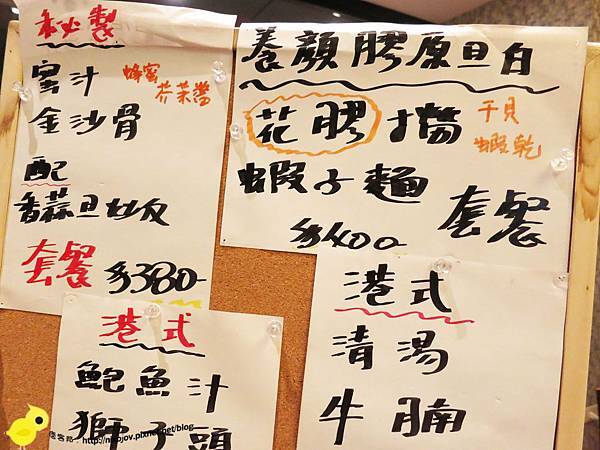 秘製
蜜汁
蜂蜜
芥茉醬
金沙骨
配
香蒜旦炒飯
套餐 $380-
養顏膠原旦白
花膠撈
干貝
蝦乾
蝦子麵
套餐
$400-
港式
鮑魚汁
獅子頭
港式
清湯
牛腩